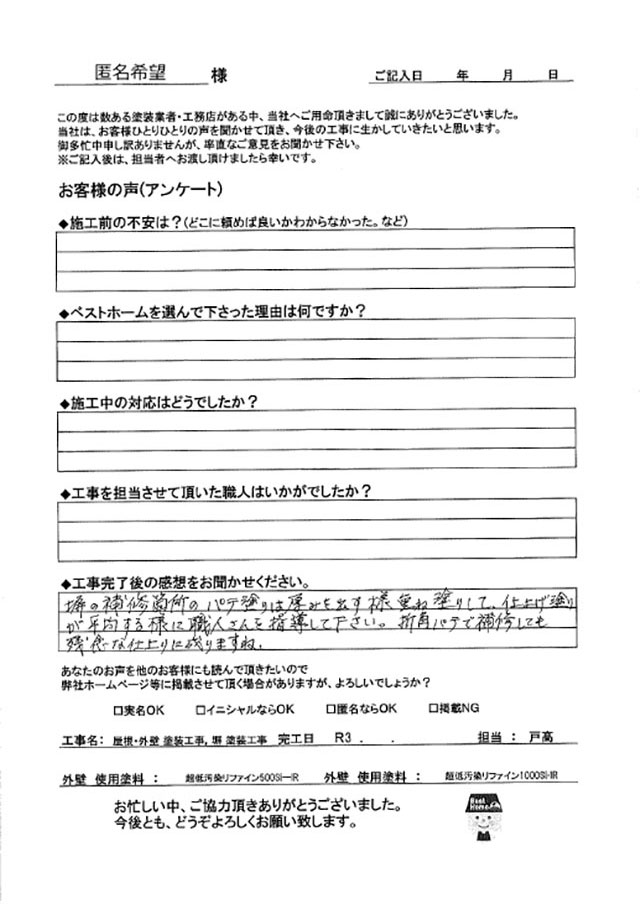 匿名希望 様
ご記入日 年 月 日
この度は数ある塗装業者・工務店がある中、当社へご用命頂きまして誠にありがとうございました。
当社は、お客様ひとりひとりの声を聞かせて頂き、今後の工事に生かしていきたいと思います。
御多忙中申し訳ありませんが、率直なご意見をお聞かせ下さい。
※ご記入後は、担当者へお渡し頂けましたら幸いです。
お客様の声(アンケート)
◆施工前の不安は？(どこに頼めば良いかわからなかった。など)
◆ベストホームを選んで下さった理由は何ですか？
◆施工中の対応はどうでしたか？
◆工事を担当させて頂いた職人はいかがでしたか？
◆工事完了後の感想をお聞かせください。
塀の補修箇所のパテ塗りは厚みを出す様重ね塗りして、仕上げ塗り
が平均する様に職人さんを指導して下さい。折角パテで補修しても
残念な仕上りに成りますね。
あなたのお声を他のお客様にも読んで頂きたいので
弊社ホームページ等に掲載させて頂く場合がありますが、よろしいでしょうか？
□実名OK □イニシャルならOK □匿名ならOK □掲載NG
工事名： 屋根・外壁 塗装工事, 塀 塗装工事 完工日 R3 . . 担当 ： 戸高
外壁 使用塗料： 超低汚染リファイン500SI-IR 外壁 使用塗料： 超低汚染リファイン1000SI-IR
お忙しい中、ご協力頂きありがとうございました。
今後とも、どうぞよろしくお願い致します。
Best Home